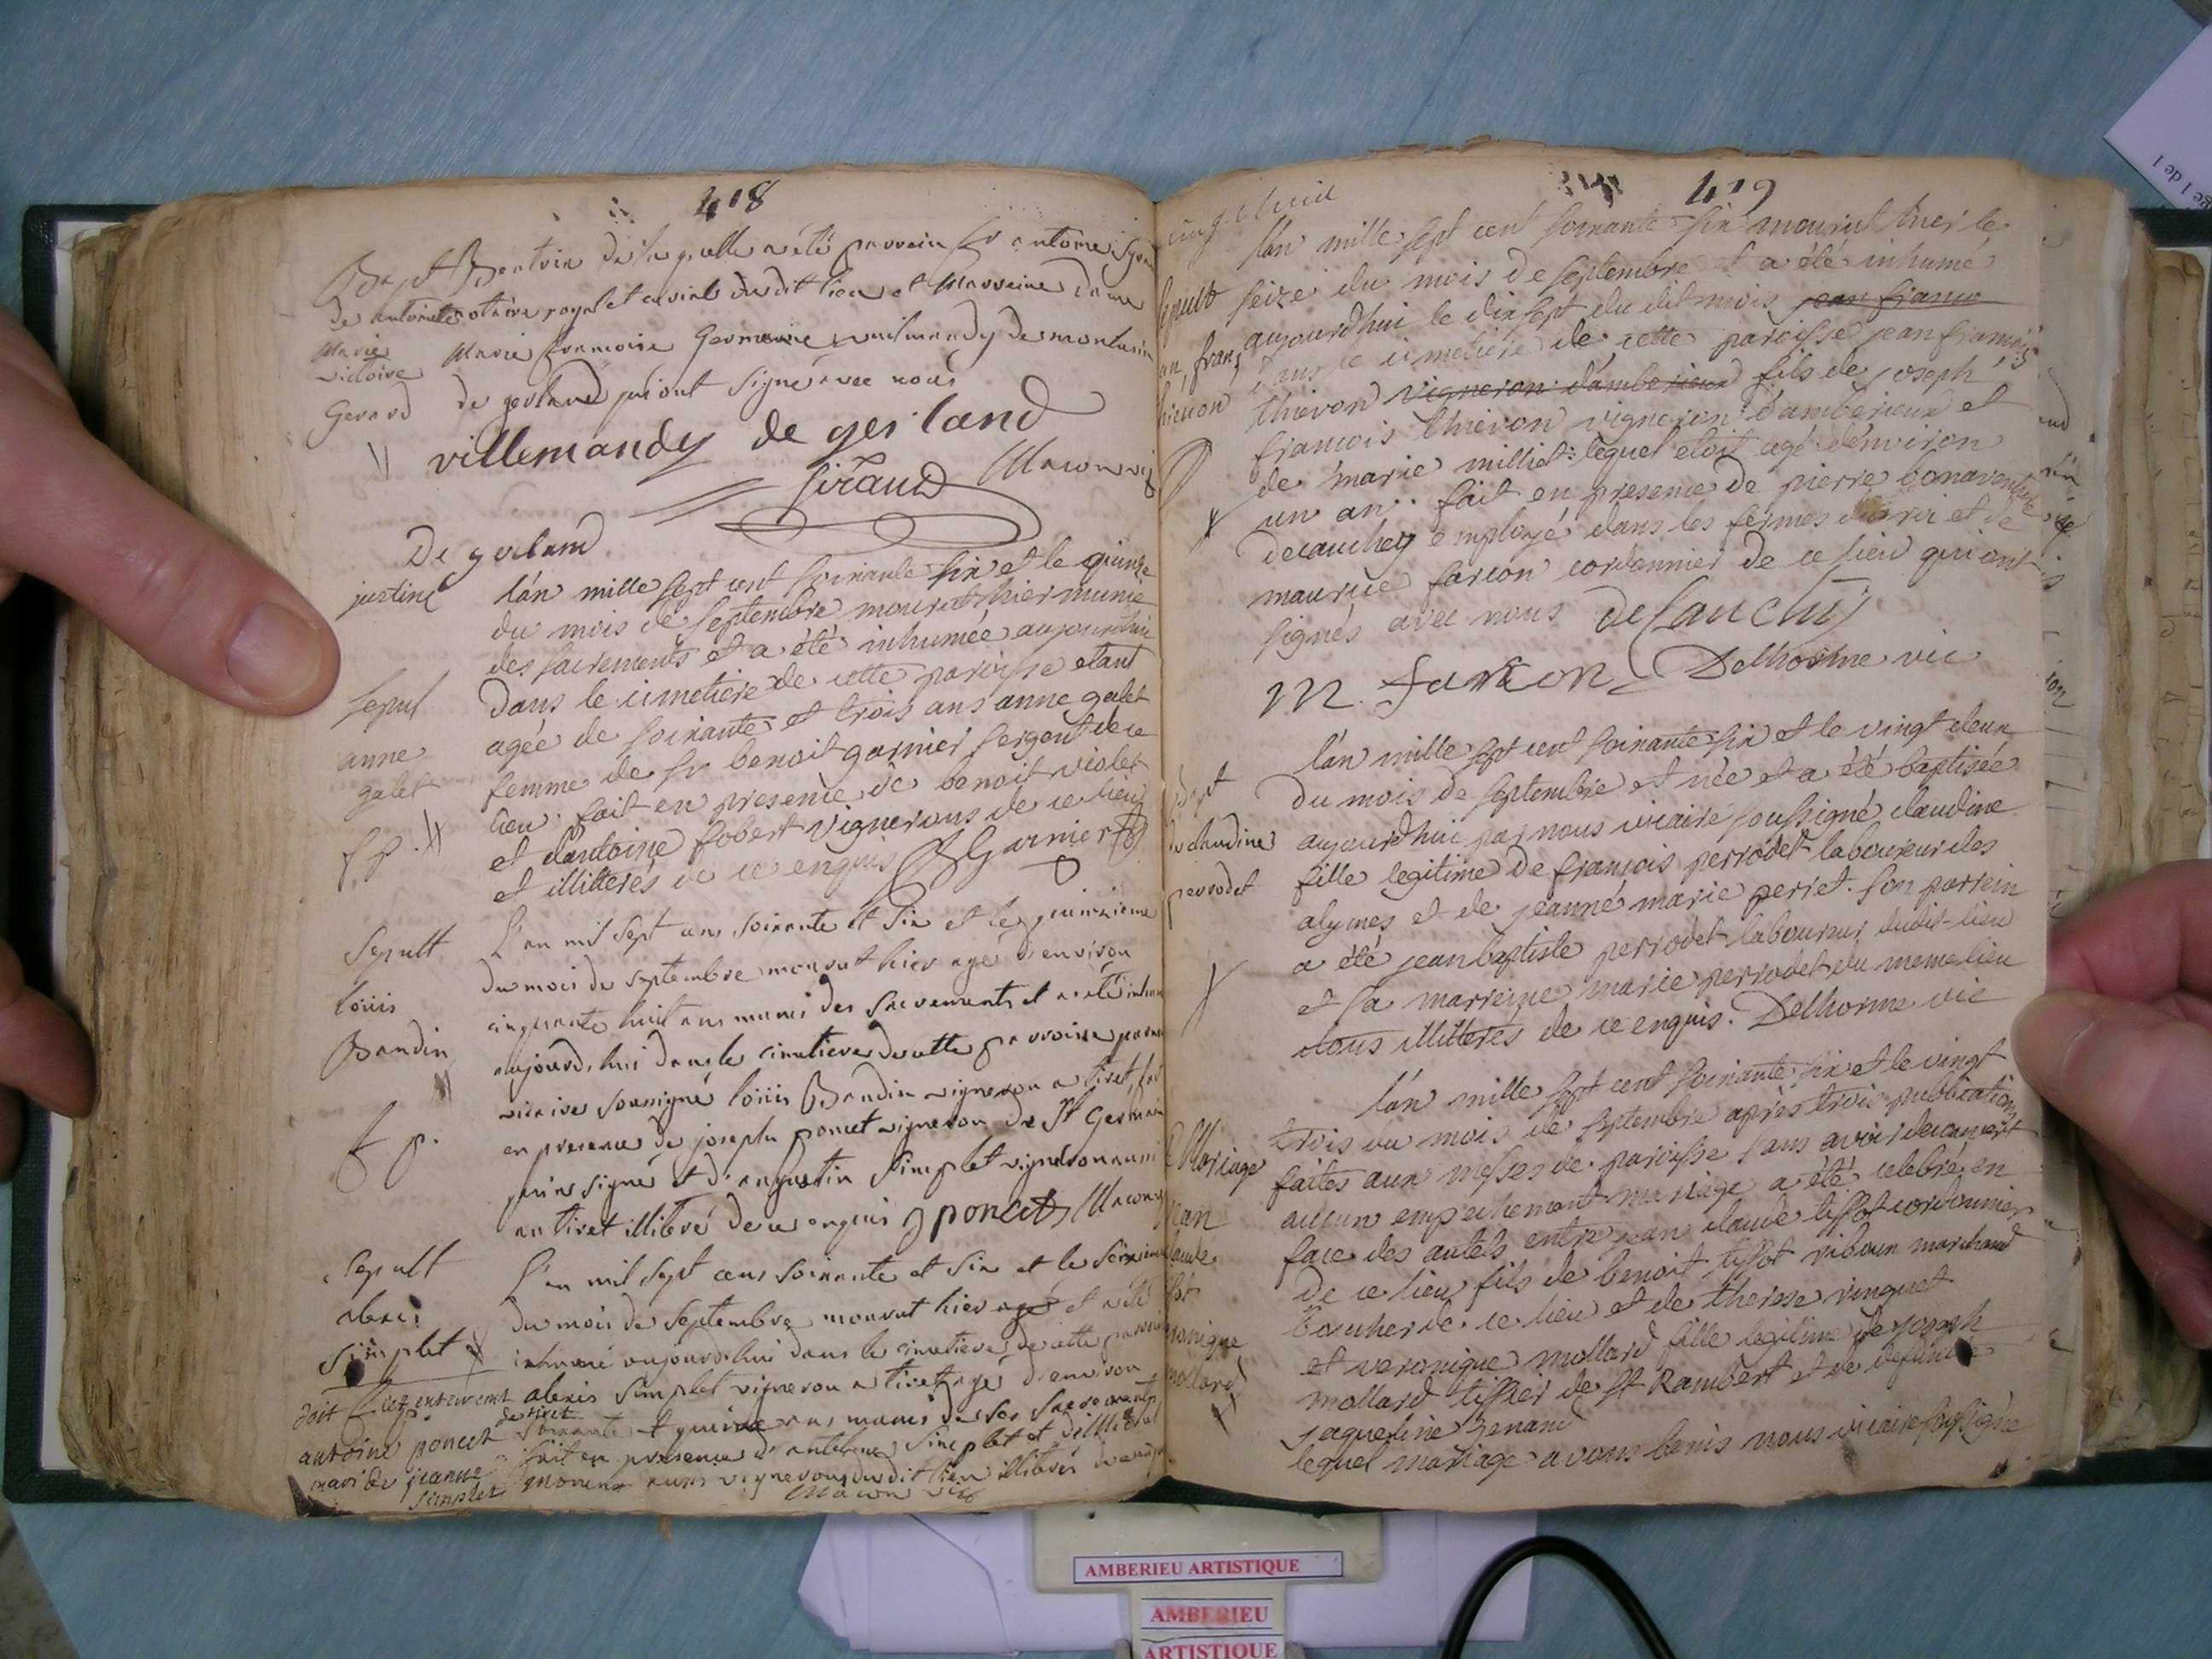 418
De antoinette notaire royal et ducit lieu et Marreine Dame
Marie
victoire
Gerard
Marie francoise Germaine
de gerland qui ont signé avec nous
villemandy de gerland
Siraud
De gerland
justine
lán mille sept cent soixante six et le quinze
du mois de septembre mourut hier munie
des sacrements et a été inhumée aujourdhuy
Dans le cimetiere de cette paroisse etant
sepul
anne
galet
agée de soixante et trois ans anne galet
femme de sr benoit garnier sergent de ce
lieu. fait en presence de benoit violet
et dantoine fobert vignerons de ce lieu
et illitterés de ce enquis Garnier
Sepult
loüis
Baudin
L'an mil sept cens soixante et six et le quinzieme
du mois de septembre mourut hier agé d'environ
cinquante huit ans munis des sacrements et a été
aujourd.hui dans le cimetiere de cette parroisse
vicaire soussigné loüis Baudin vigneron a tiret fait
f p.
en presence de joseph poncet vigneron de St Germain
qui a signé et d'augustin Simplet vigneron aussi
au tiret illiteré de ce enquis j poncet
Sepult
alexis
Simplet
L'an mil sept cens soixante et six et le seizieme
du mois de septembre mourut hier agé et a été
inhumé aujourd.hui dans le cimetiere de cette
alexis simplet vigneron a tiret agé d'environ
soixante et quinze ans munis de ses sacrements
fait en presence d' simplet et
doit l'enterrement
antoine poncet de tiret
mari de jeanne
simplet
419
lán mille sept cent soixante six mourut hier le
sepult seize du mois de septembre et a été inhumé
aujourdhui le dix sept du dit mois jean francois
dans le cimetiere de cette paroisse jean francois
thievon vigneron d'amberieux fils de joseph
francois thievon vigneron d'amberieux et
de marie milliet: lequel etoit agé d'environ
un an. fait en presence de pierre bonaventure
decauchy employé dans les fermes du roi et de
maurice farcon cordonnier de ce lieu qui ont
signés avec nous
m. farcon Delhorme vic
bapt
claudine
perrodet
lán mille sept cent soixante six et le vingt deux
du mois de septembre est née et a été baptisée
aujourdhui par nous vicaire soussigné claudine
fille legitime de francois perrodet laboureur des
alymes et de jeanne marie perret. son parrein
a été jean baptiste perrodet laboureur dudit lieu
et sa marreine marie perrodet du meme lieu
tous illitterés de ce enquis. Delhorme vic
Mariage
lán mille sept cent soixante six et le vingt
trois du mois de septembre après trois publications
faites aux messes de paroisse sans avoir decouvert
aucun empechement mariage a été celebré en
face des autels entre jean claude tissot cordonnier
de ce lieu fils de benoit tissot marchand
boucher de ce lieu et de therese vinguet
et veronique mollard fille legitime de joseph
mollard tissier de st Rambert et de defunte
jaqueline genand
lequel mariage avons benis nous vicaire soussigné
AMBERIEU ARTISTIQUE
AMBERIEU
ARTISTIQUE